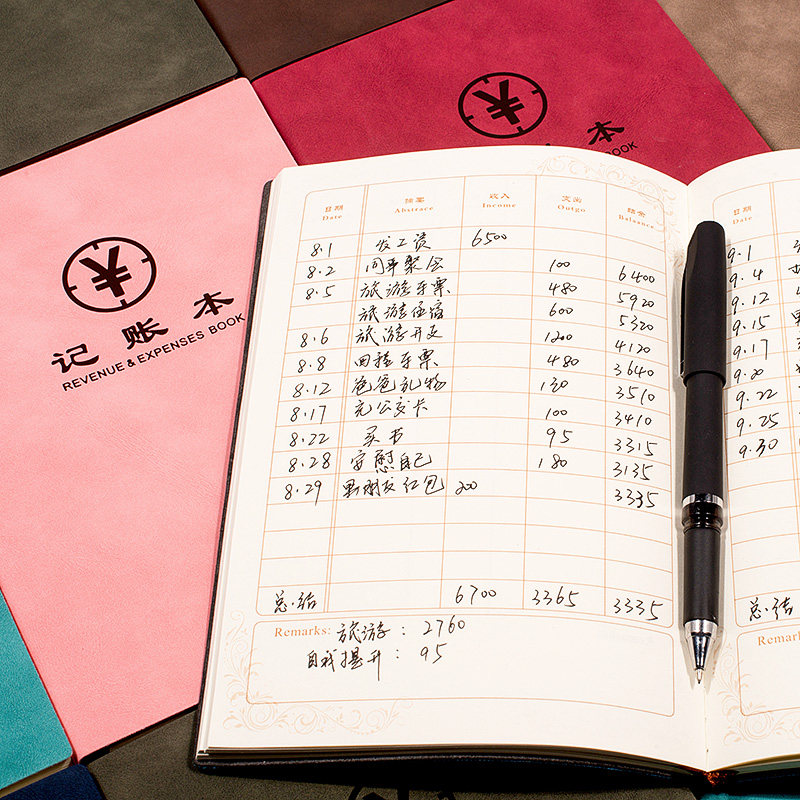 记账本
REVENUE & EXPENSES BOOK
本
BOOK
日期 摘要 收入 支出 结余
Date Abstrace Income Outgo Balance
8.1 发工资 6500
8.2 同事聚会 100 6400
8.5 旅游车票 480 5920
旅游住宿 600 5320
8.6 旅游开支 1200 4120
8.8 回程车票 480 3640
8.12 爸爸礼物 130 3510
8.17 充公交卡 100 3410
8.22 买书 95 3315
8.28 安慰自己 180 3135
8.29 男朋友红包 200 3335
总结 6700 3365 3335
Remarks: 旅游: 2760
自我提升: 95
日期
Date
9.1
9.4
9.12
9.15
9.17
9.20
9.22
9.25
9.30
总结
Remarks